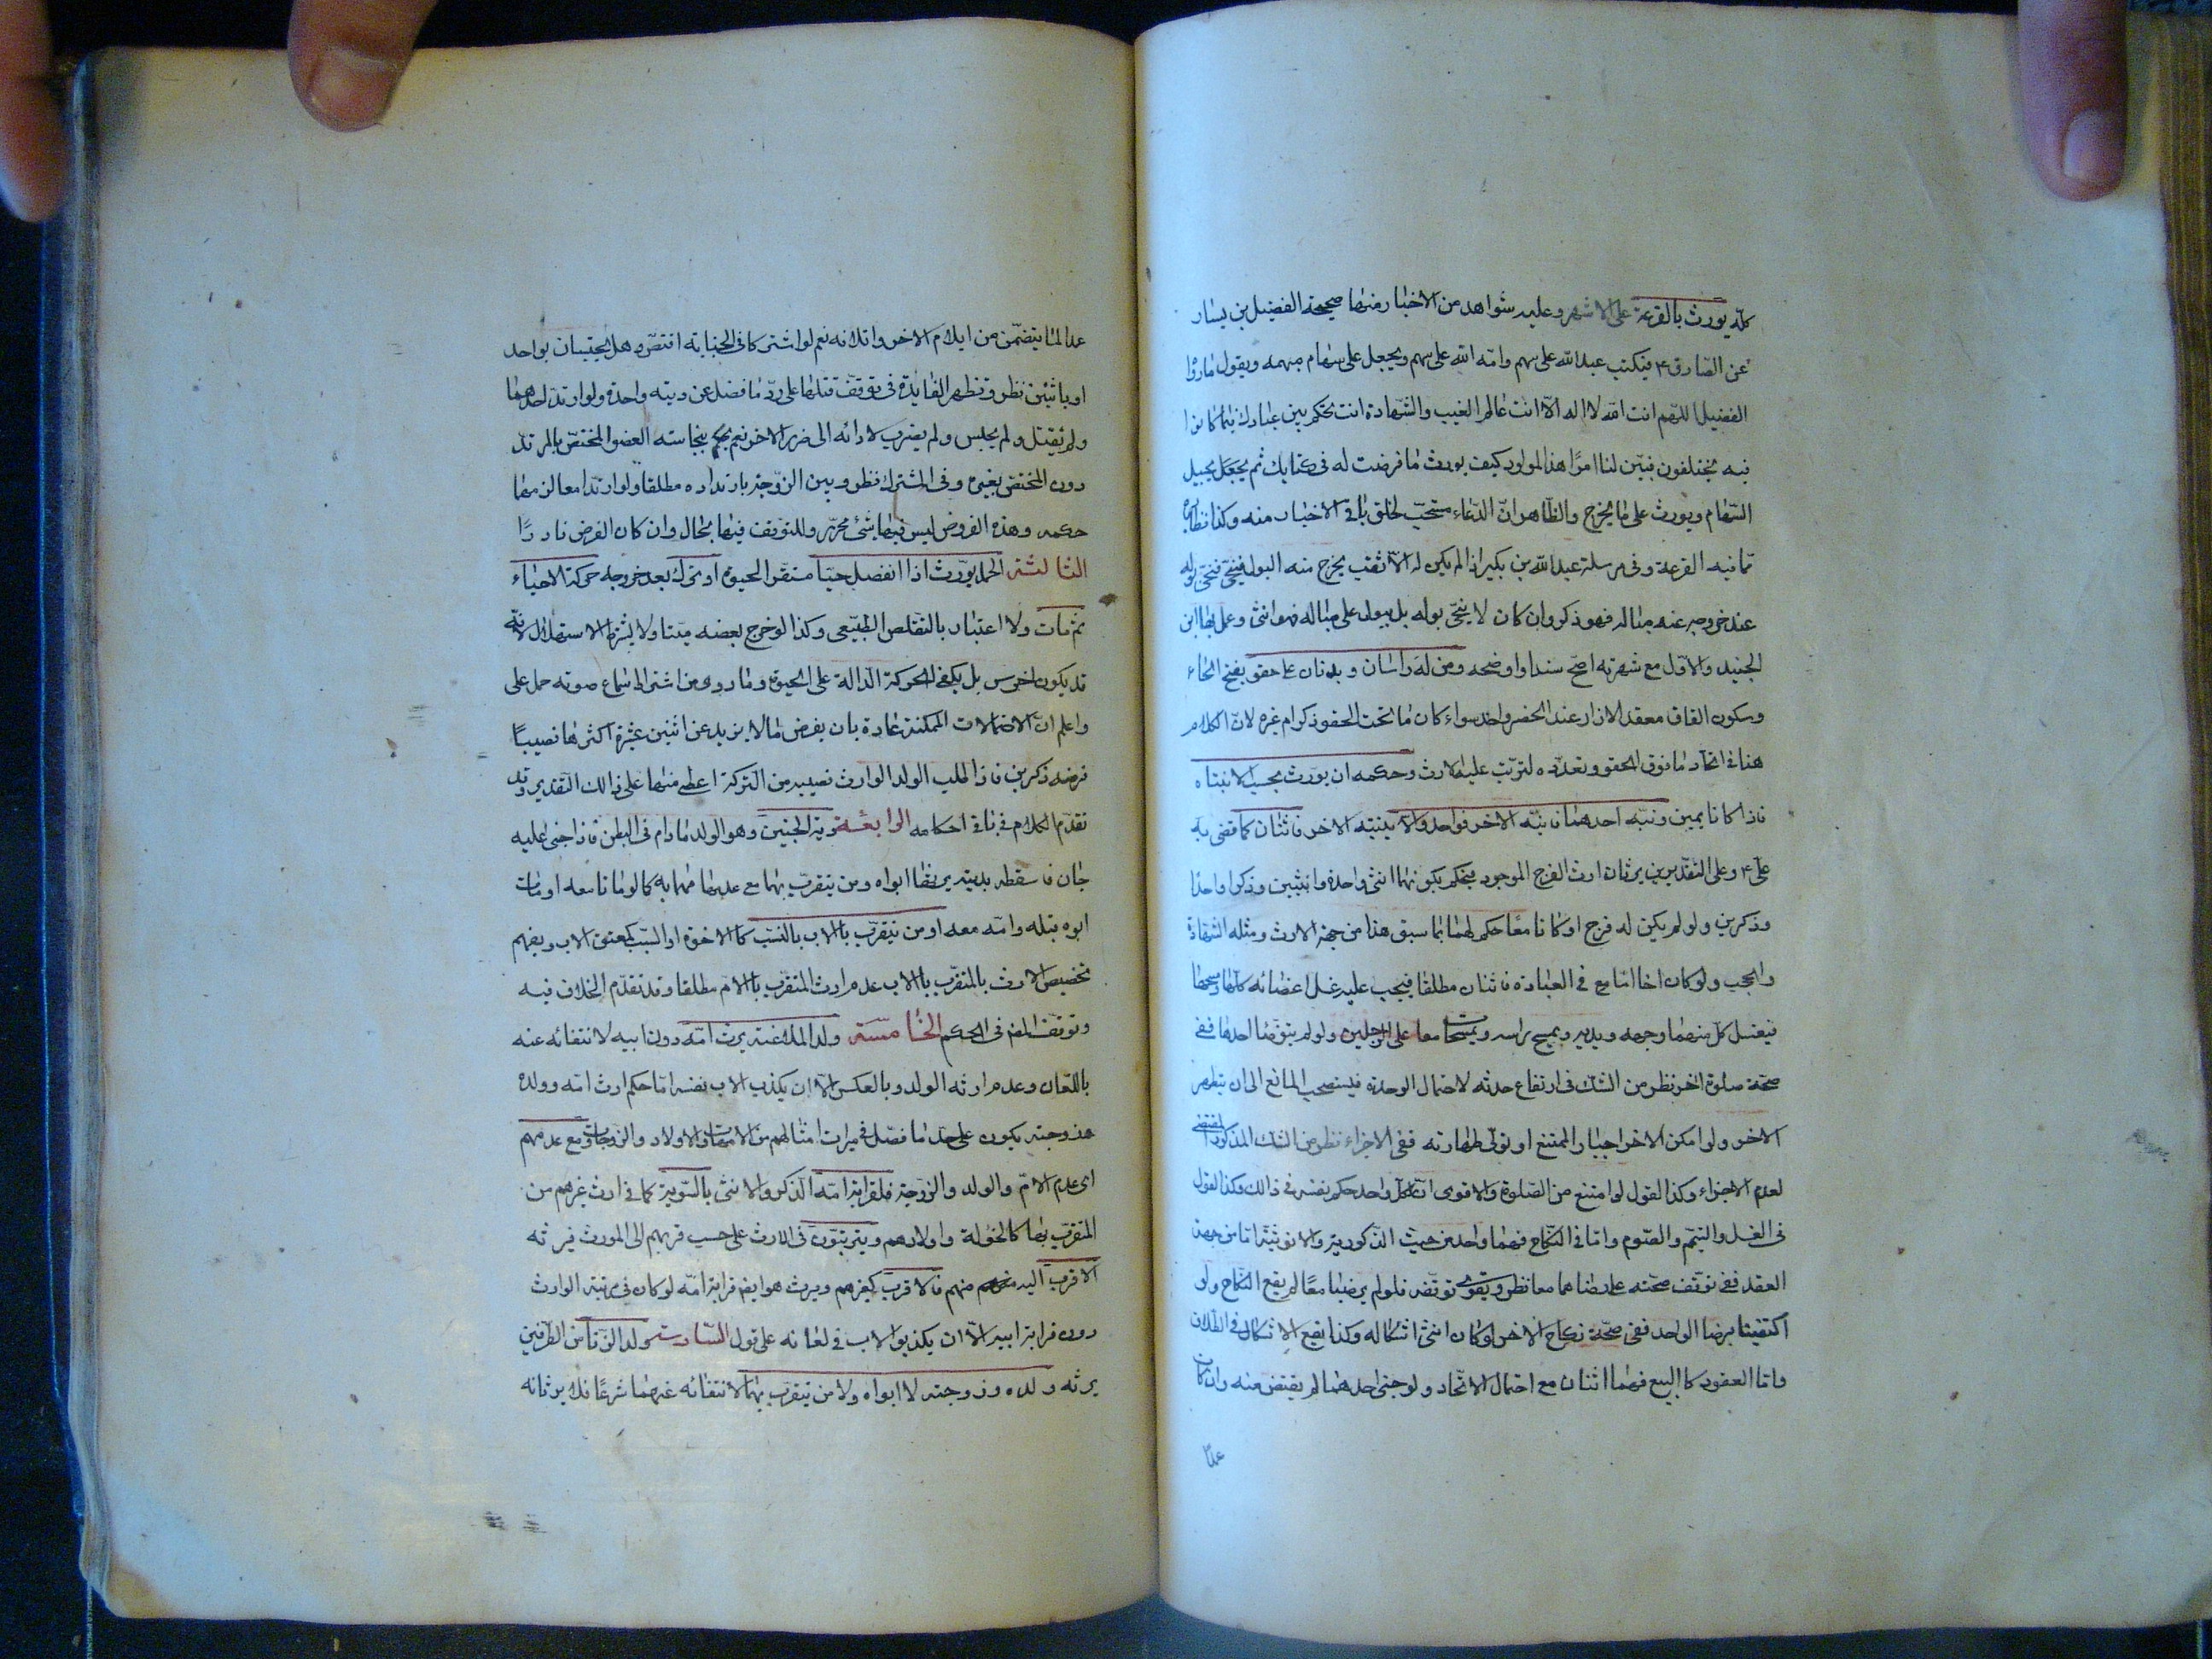 كلّه يورث بالقرعة على الاشهر وعليه شواهد من الاخبار منها صحيحة الفضيل بن يسار
عن الصّادق ۴ فيكتب عبد الله على سهم وامة الله على سهم ويجعل على سهام مبهمة ويقول ما رواه
الفضيل اللهم انت الله لا اله الا انت عالم الغيب والشهادة انت تحكم بين عبادك فيما كانوا
فيه يختلفون فبيّن لنا امر هذا المولود كيف يورث ما فرضت له فى كتابك ثم يجعل يجيل
السّهام ويورث على ما يخرج والظاهر انّ الدّعاء مستحبّ لخلوّ باقى الاخبار منه وكذا نظائره
مما فيه القرعة وفى مرسلة عبد الله بن بكير اذا لم يكن له الا ثقب يخرج منه البول فينحّى بوله
عند خروجه عنه مباله فهو ذكر وان كان لا ينحّى بوله بل يبول على مباله فهو انثى وعمل بها ابن
الجنيد والاوّل مع شهرته اصحّ سندا واوضحه ومن له راسان وبدنان على حقو بفتح الحاء
وسكون القاف معقد الازار عند الخصر واحد سواء كان ما تحت الحقو ذكرا ام غيره لانّ الكلام
هنا فى اتحاد ما فوق الحقو وتعدّده ليترتب عليه الارث وحكمه ان يورث بحسب الانتباه
فاذا كانا نايمين ونبّه احدهما فانتبه الاخر فواحد والا ينتبه الاخر فاثنان كما قضى به
علىّ ۴ وعلى التقديرين يرثان ارث الفرج الموجود فيحكم بكونهما انثى واحدة وانثيين وذكرا واحدا
وذكرين ولو لم يكن له فرج او كانا معًا حكم لهما بما سبق هذا من جهة الارث ومثله الشهادة
والحجب ولو كان اخا اما مع فى العبادة فاثنان مطلقا فيجب عليه غسل اعضائه كلّها ومسحها
فيغسل كل منهما وجهه ويديه ويمسح براسه ويمسحا معا على الرجلين ولو لم يتوضّا احدهما ففى
صحّة صلوة الاخر نظر من الشكّ فى ارتفاع حدثه لاحتمال الوحدة فيستصحب المانع الى ان يتطهر
الاخر ولو امكن الاخر اجبار الممتنع او تولّى طهارته ففى الاجزاء نظر من الشك المذكور المقتضى
لعدم الاجزاء وكذا القول لو امتنع من الصّلوة والاقوى انّ لكل واحد حكم نفسه فى ذالك وكذا القول
فى الغسل والتيمّم والصّوم وامّا فى النّكاح فهما واحد من حيث الذكورية والانوثية امّا من جهة
العقد ففى توقّف صحّته على رضاهما معا نظر ويقوى توقّفه فلو لم يرضيا معًا لم يقع النّكاح ولو
اكتفينا برضا الواحد ففى صحّة نكاح الاخر لو كان انثى اشكال وكذا يقع الاشكال فى الطّلاق
وامّا العقود كالبيع فهما اثنان مع احتمال الاتّحاد ولو جنى احدهما لم يقتص منه وان كان
عمدًا
عمدا لما يتضمّن من ايلام الاخر واتلافه نعم لو اشتركا فى الجناية اقتصّ وهل يحتسبان بواحد
او باثنين نظر وتظهر الفايدة فى توقّف قتلهما على ردّ ما فضل عن دية واحدة ولو ارتدّ احدهما
ولم يقتل ولم يحبس ولم يضرب لادائه الى ضرر الاخر نعم يحكم بنجاسته العضو المختصّ بالمرتد
دون المختص بغيره وفى المشترك نظر وبين الزوجة بارتداده مطلقا ولو ارتدا معا لزمهما
حكمه وهذه الفروض ليس فيها شئ محرّر وللتوقف فيها مجال وان كان الفرض نادرًا
الثالثة الحمل يورّث اذا انفصل حيّا مستقر الحيوة او تحرّك بعد خروجه حركة الاحياء
ثم مات ولا اعتبار بالتقلّص الطبيعى وكذا لو خرج بعضه ميّتا ولا يشترط الاستهلال لانّه
قد يكون اخرس بل يكفى الحركة الدّالة على الحيوة وما روى من اشتراط سماع صوته حمل على
واعلم انّ الاحتمالات الممكنة عادة بان يفرض ما لا يزيد عن اثنين عشرة اكثرها نصيبًا
فرضه ذكرين فاذا طلب الولد الوارث نصيبه من التركة اعطى منها على ذالك التقدير وقد
تقدّم الكلام فى باقى احكامه الرابعة دية الجنين وهو الولد ما دام فى البطن فاذا جنى عليه
جان فاسقطه بديته يرثها ابواه ومن يتقرّب بهما مع عدمهما مهما به كما لو ماتا معه او مات
ابوه قبله وامّه معه او من يتقرّب بالاب بالنسب كالاخوة او السّبب كمعتق الاب ويفهم
تخصيص الارث بالمتقرّب بالاب عدم ارث المتقرّب بالامّ مطلقا وقد تقدّم الخلاف فيه
وتوقّف المص فى الحكم الخامسة ولد الملاعنة يرث امّه دون ابيه لانتفائه عنه
باللّعان وعدم ارثه الولد وبالعكس الا ان يكذب الاب نفسه امّا حكم ارث امّه وولده
وزوجته يكون على حدّ ما فصّل فى ميراث امثالهم من الامهات والاولاد والزوجات ومع عدمهم
اى عدم الامّ والولد والزوجة فلقرابة امّه الذكر والانثى بالسّوية كما فى ارث غيرهم من
المتقرّب بها كالخولة واولادهم ويترتبّون فى الارث على حسب قربهم الى المورث فيرثه
الاقرب اليه منهم فالاقرب كغيرهم ويرث هو ايض قرابة امّه لو كان فى مرتبة الوارث
دون قرابة ابيه الا ان يكذبوا الاب فى لعانه على قول السّادسة ولد الزّنا من الطّرفين
يرثه ولده وزوجته لا ابواه ولا من يتقرّب بهما لانتفائه عنهما شرعًا فلا يرثانه